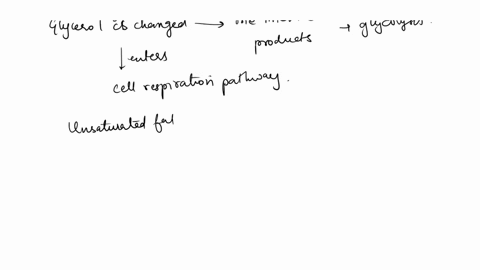 Glycerol is changed → the
products → glycolysis.
↓ enters
cell respiration pathway.
Unsaturated fat